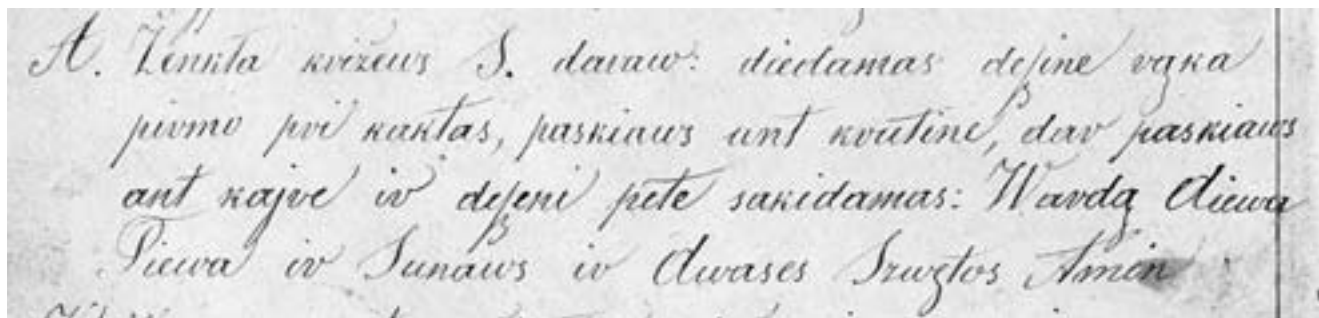 A. Ženkla križeus S. daraw: diedamas deßine rąka
pirmo pri kaktas, paskiaus ant krutine, dar paskiaus
ant kajre ir deßeni pete sakidamas: Wardą Diewa
Tiewa ir Sunaus ir Dwases Szwętos Amen